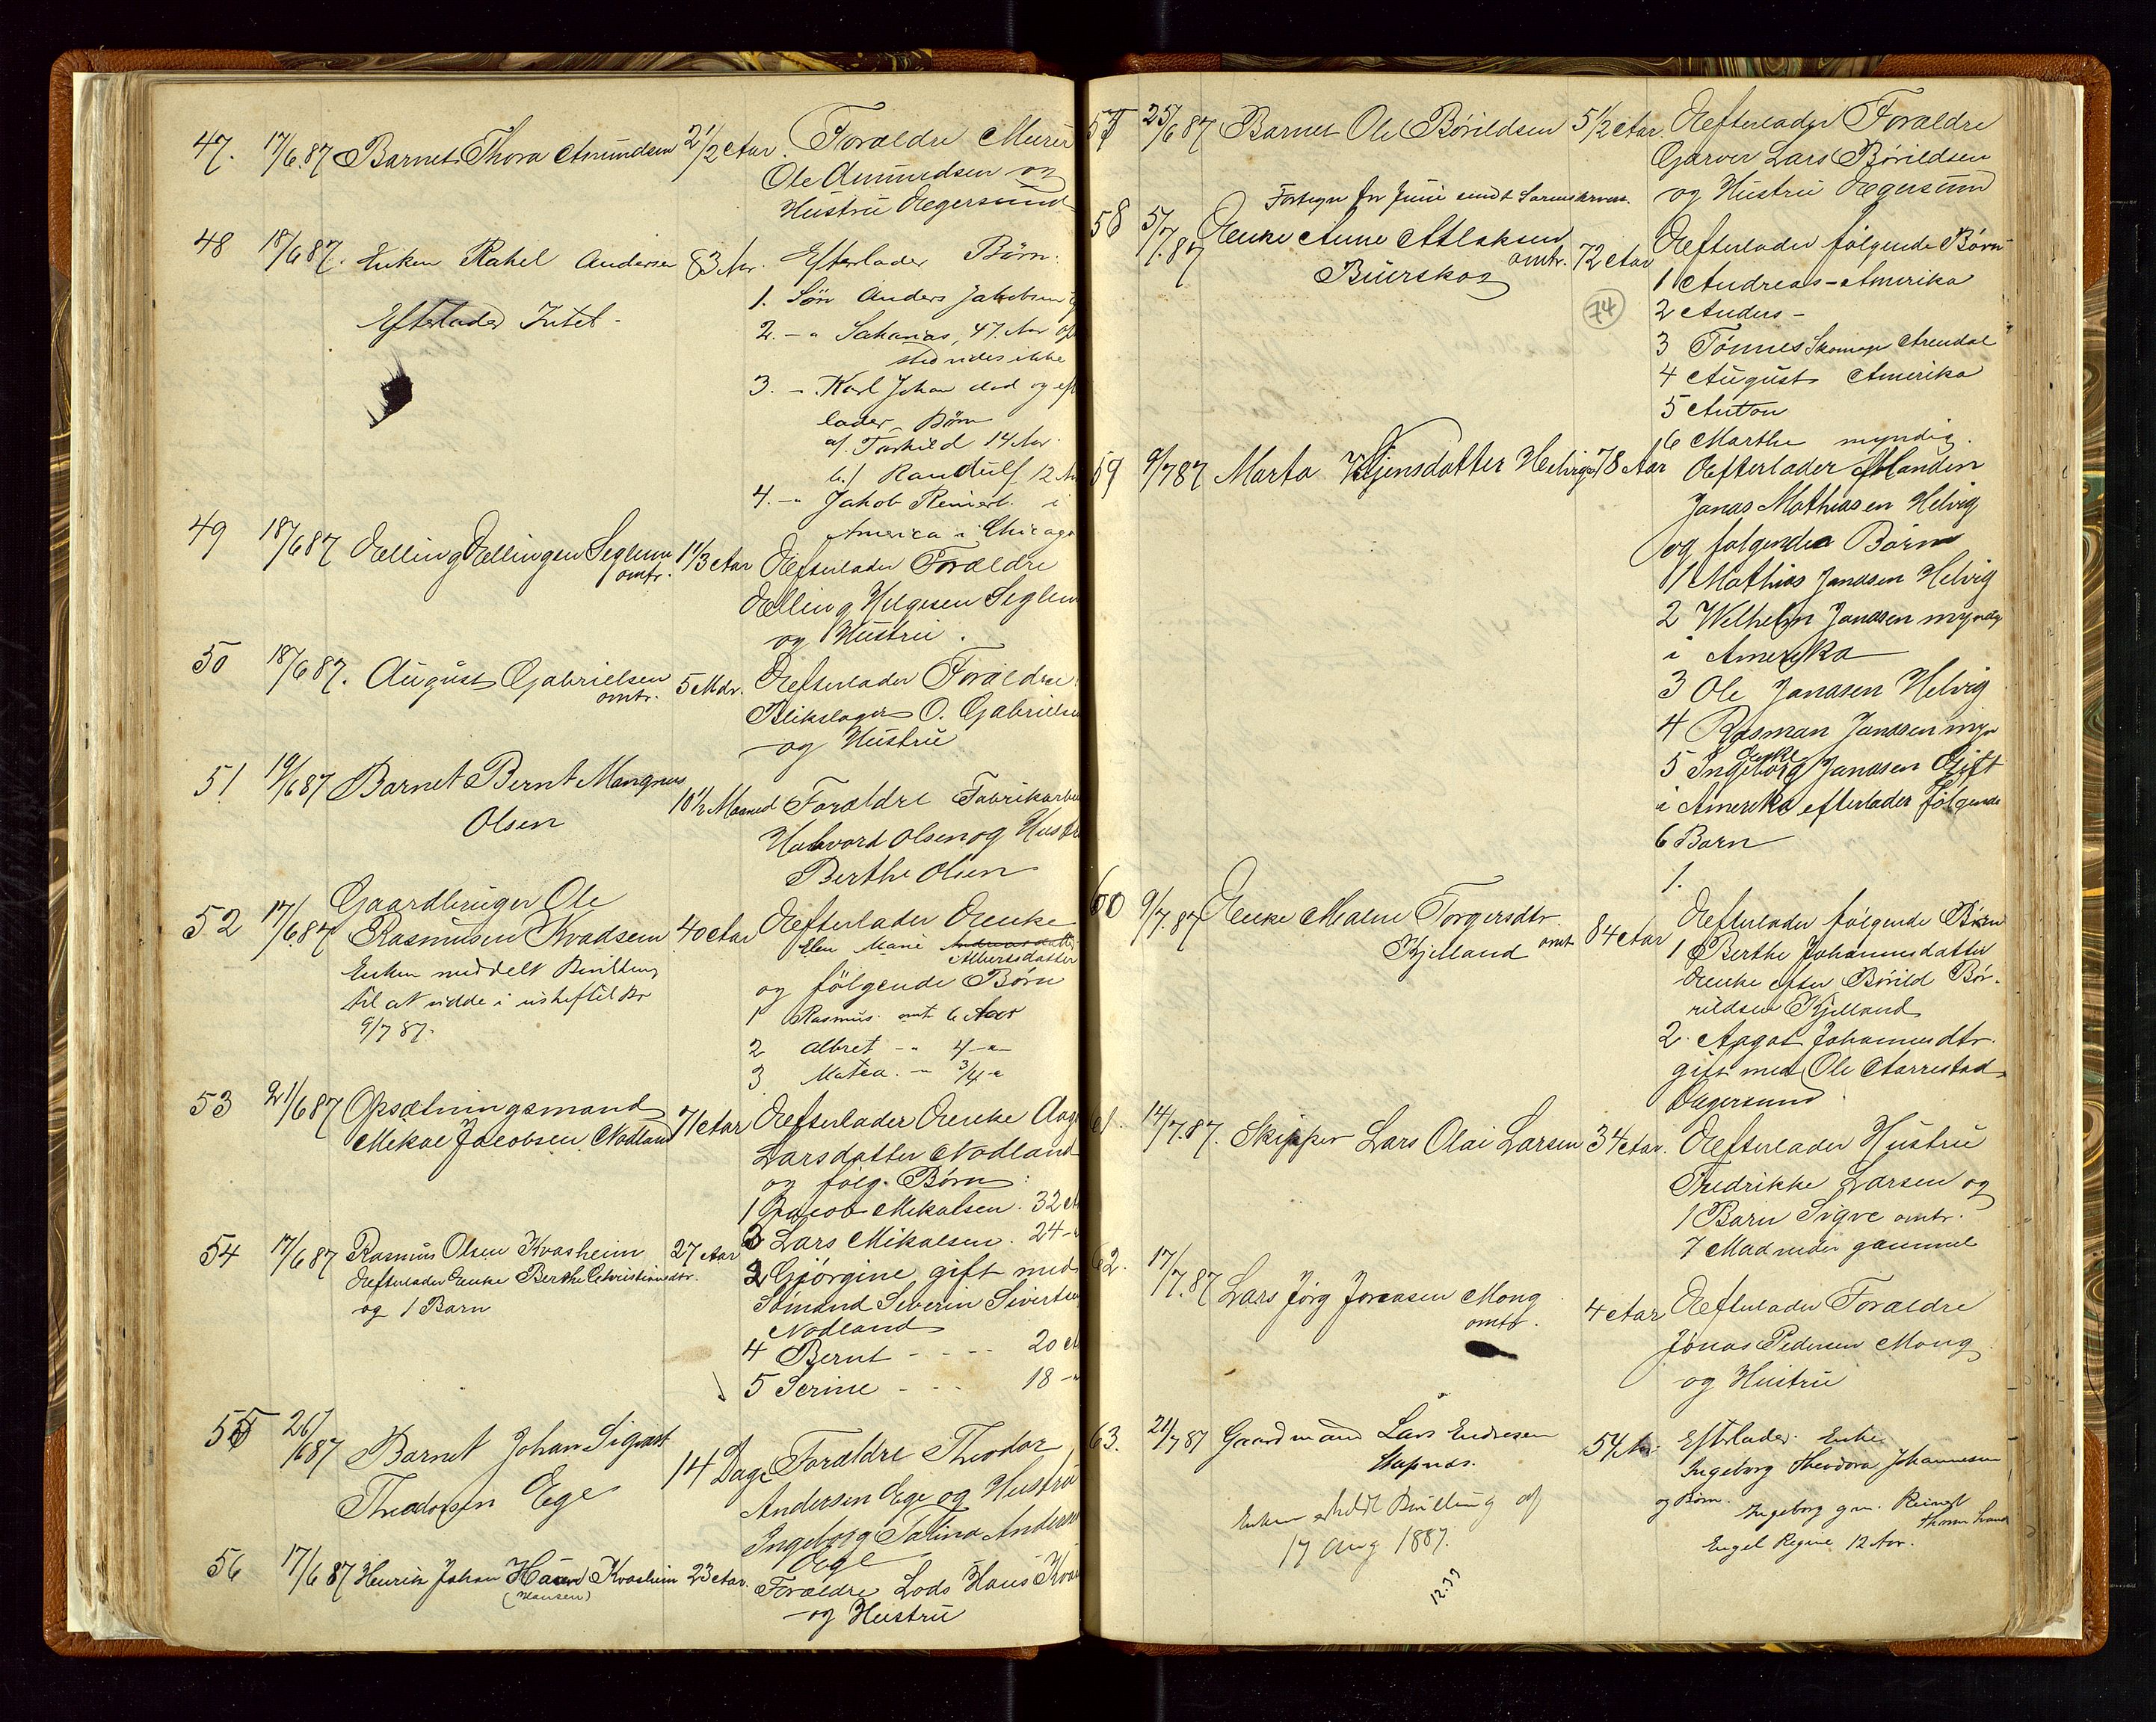 47. 17/6.87 Barnet Thora Amundsen 2 1/2 Aar. Forældre Murer
Ole Amundsen og
Hustru Egersund
48 18/6 87. Enken Rakel Andersen 83 Aar. Efterlader Børn:
1. Søn Anders Jakobsen
Efterlader Intet.
2. -"- Sakarias, 47 Aar op
sted vides ikke
3. - Karl Johan død og ef
lader Børn
a/. Torkild 14 Aar.
b./ Randulf 12 Aa
4. -"- Jakob Reinert i
America i Chicago
49 18/6 87 Elling Ellingsen Seglem omtr. 1 1/3 Aar Efterlader Forældre
Elling Helgesen Seglem
og Hustru.
50 18/6 87. August Gabrielsen omtr. 5 Mdr. Efterlader Forældre
Blikslager O. Gabrielsen
og Hustru
51 19/6 87 Barnet Bernt Mangnus 10 1/2 Maaned Forældre Fabrikarbei
Olsen
Halvord Olsen og Hustru
Berthe Olsen
52 17/6 87 Gaardbruger Ole
Rasmusen Kvadsem 40 Aar Efterlader Enke
Elen Marie Andreasdatter
Albertsdatter
Enken meddelt Bevilling
til at sidde i uskiftet Bo
9/7 87.
og følgende Børn
1 Rasmus omt 6 Aar
2 Albret -"- 4 -"-
3 Matea. -"- 3/4 -"-
53 21/6 87 Opsætningsmand
Mikal Jacobsen Nodland 71 Aar Efterlader Enke Aag
Larsdatter Nodland
og følg. Børn:
1 Jacob Mikalsen. 32 A
2 Lars Mikalsen. 24 -"
3 Gjørgine gift med
Sømand Severin Sivertsen
Nodland
4 Bernt - - - - 20 A
5 Serine - - - 18 -"
54 17/6 87 Rasmus Olsen Kvasheim 27 Aar
Efterlader Enke Berthe Christiansdtr.
og 1 Barn
55 26/6 87 Barnet Johan Sigvart
Theodorsen Ege 14 Dage Forældre Theodor
Andersen Ege og Hustru
Ingeborg Taline Andersen
Ege
56 17/6 87 Henrik Johan Kvasheim 23 Aar. Forældre Lods Hans Kva
(Hansen)
og Hustru
57 25/6 87 Barnet Ole Børildsen 5 1/2 Aar. Efterlader Forældre
Garver Lars Børildsen
og Hustru Egersund
Fortegn for Juni sendt Sorenskriver.
58 5/7.87 Enke Anne Aslaksen
Buerskog omtr. 72 Aar
74
Efterlader følgende Børn
1 Andreas - Amerika
2 Anders -
3 Tønnes Skomager Arendal
4 August Amerika
5 Anton
6 Marthe myndig.
59 9/7 87 Marta Helvig 78 Aar Efterlader Manden
Jonas Mathiasen Helvig
og følgendea Børn
1 Mathias Janasen Helvig
2 Welhelm Janasen myndig
i Amerika
3 Ole Janasen Helvig
4 Rasman Janasen myn
5 Ingeborg Enke Janasen Gift
i Amerika efterlader følgende
6 Barn
1.
60 9/7.87 Enke Malene Torgersdtr.
Kjelland omt 84 Aar Efterlader følgende Børn
1 Berthe Johannesdatter
Enke efter Børild Bø-
rildsen Kjelland
2. Aagot Johannesdtr.
gift med Ole Aarrestad
Egersund.
61. 14/7.87. Skipper Lars Olai Larsen 34 Aar. Efterlader Hustru
Fredrikke Larsen og
1 Barn Sigve omtr.
7 Maaneder gammel
62. 17/7.87 Lars Jørg Jonassen Mong
omtr. 4 Aar Efterlader Forældre
Jonas Pedersen Mong
og Hustru
63. 21/7 87 Gaardmand Lars Endresen
Stapnes. 54 Aar. Efterlader Enke
Ingeborg Theodora Johannesen
og Børn. Ingeborg gm. Reinert
Engel Regine 12 Aar.
Enken erholdt Bevilling af
17 Aug 1887.
12.99